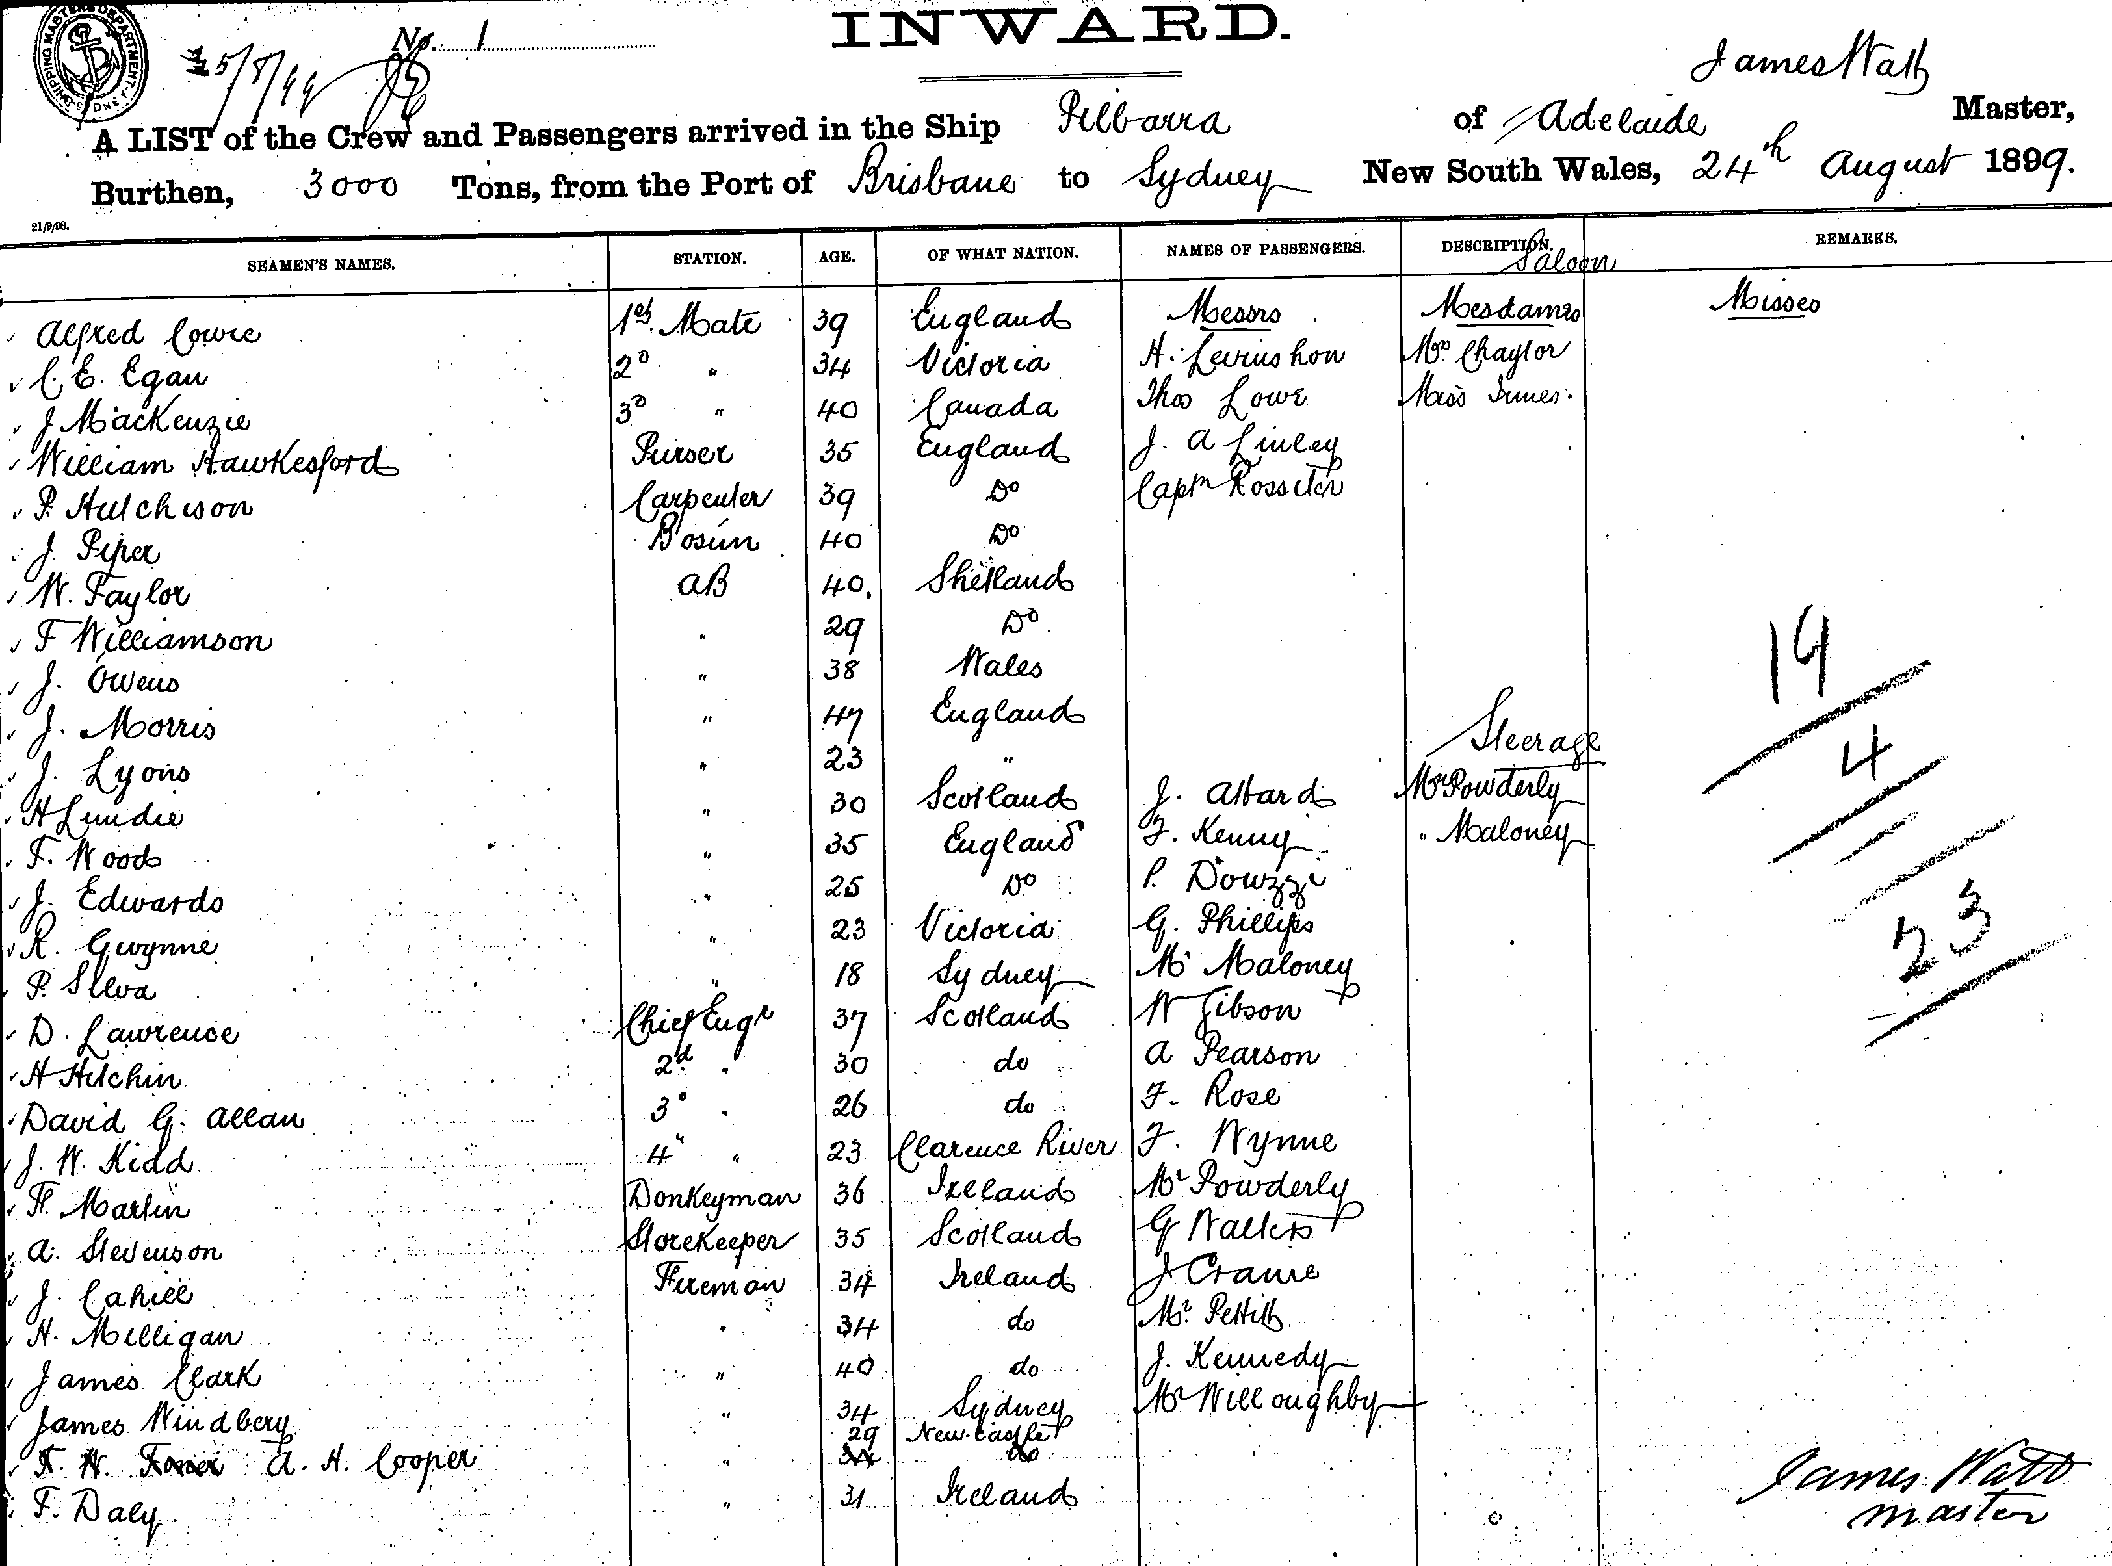 SHIPPING MASTERS DEPARTMENT
No. 1
INWARD.
James Watt
A LIST of the Crew and Passengers arrived in the Ship Pilbarra of Adelaide Master,
Burthen, 3000 Tons, from the Port of Brisbane to Sydney New South Wales, 24th August 1899.
21/9/98.
SEAMEN'S NAMES. STATION. AGE. OF WHAT NATION. NAMES OF PASSENGERS. DESCRIPTION. REMARKS.
Saloon
Alfred Cowie 1st Mate 39 England Messrs Mesdames Misses
C. E. Egan 2d " 34 Victoria H. Levinshon Mrs. Chaytor
J MacKenzie 3d " 40 Canada Thos Lowe Miss Innes.
William Hawkesford Purser 35 England J. A Linley
P. Hutchison Carpenter 39 Do Captn Rossiter
J. Piper Bosun 40 Do
W. Taylor AB 40. Shetland
F Williamson " 29 Do
J. Owens " 38 Wales
J. Morris " 47 England
Steerage
J. Lyons " 23 "
H Lundie " 30 Scotland J. Attard Mrs Powderly
F. Woods " 35 England F. Kenny " Maloney
J. Edwards " 25 Do P. Dowzzi
R. Gwynne " 23 Victoria G. Phillips
P. Silva " 18 Sydney Mr Maloney
D. Lawrence Chief Engr 37 Scotland W Gibson
H Hitchin 2d " 30 do A Pearson
David G. Allan 3d " 26 do F. Rose
J. W. Kidd 4" " 23 Clarence River F. Wynne
F. Martin Donkeyman 36 Ireland Mr Powderly
A. Stevenson Storekeeper 35 Scotland G Walters
J. Cahill Fireman 34 Ireland J Crame
H. Milligan " 34 do Mr. Pettitt
James Clark " 40 do J. Kennedy
James Windberg " 34 Sydney Mr Willoughby
A. H. Cooper " 29 New Castle
F. Daly " 31 Ireland
19
4
23
James Watt
Master